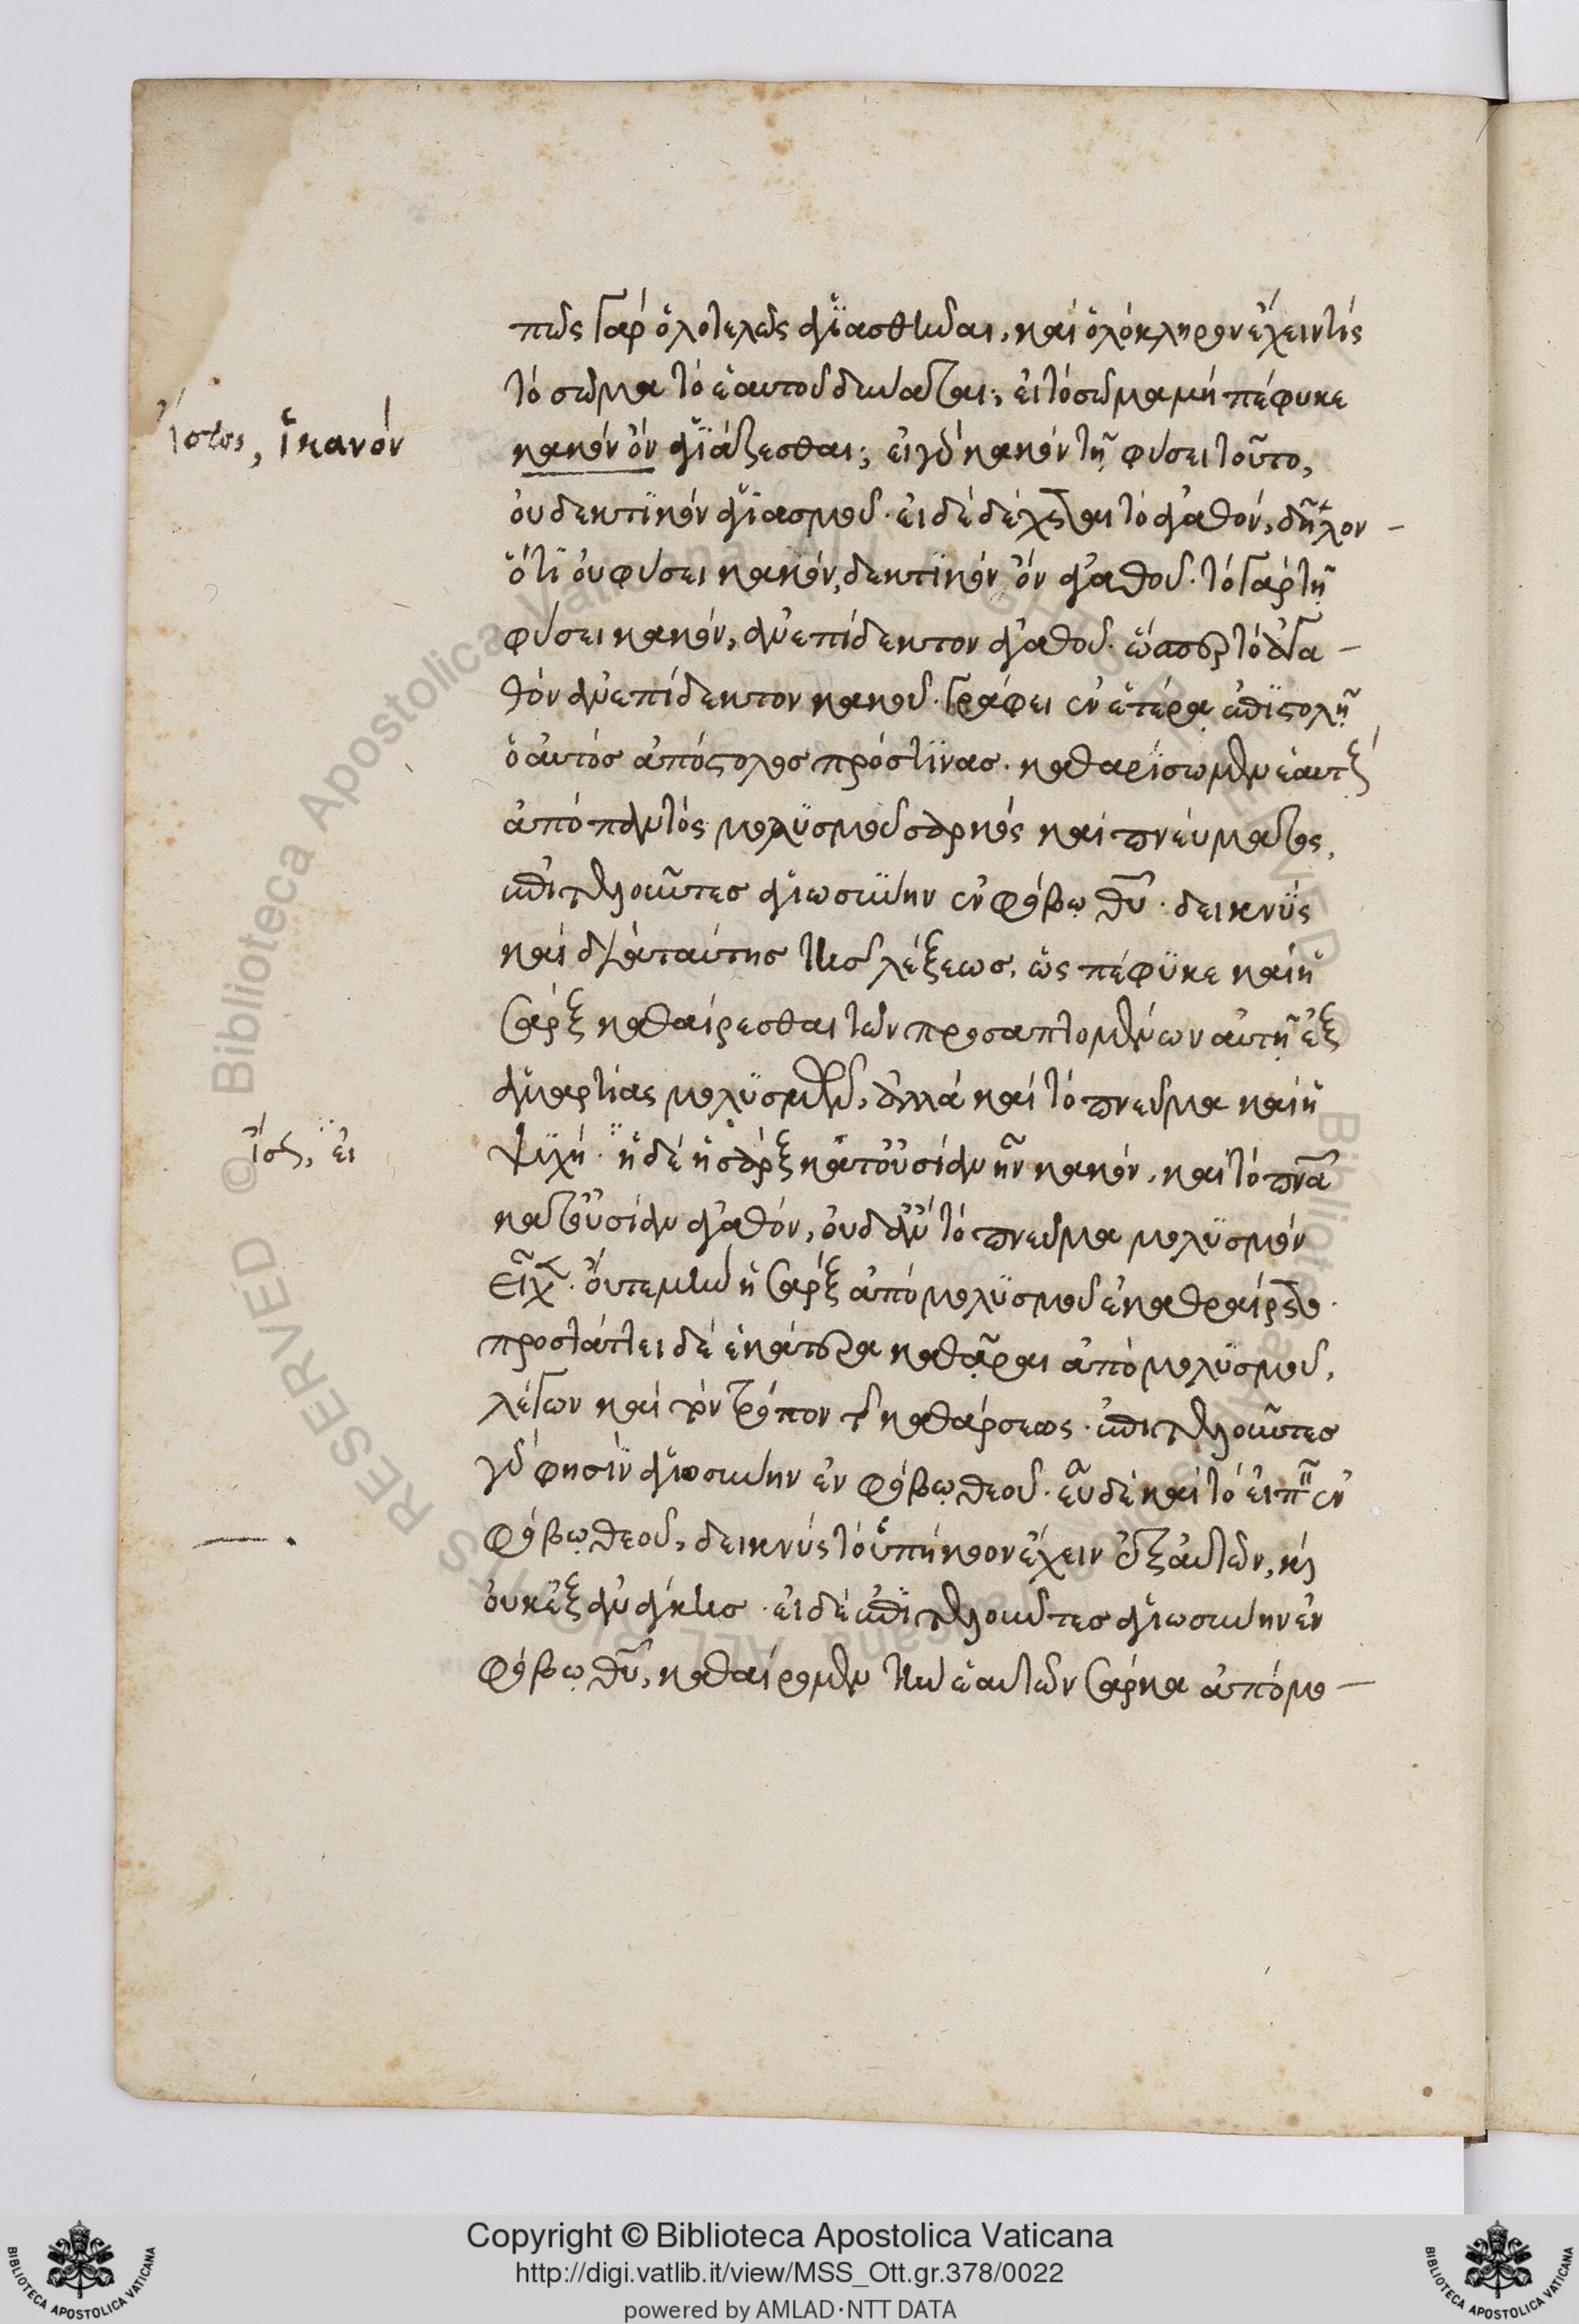 πῶς γάρ ὁλοτελῶς ἁγιασθῆναι, καὶ ὁλόκληρον ἔχειν τίς
τό σῶμα τό ἑαυτοῦ δυνάται; εἰ τό σῶμα μή πέφυκε
ἴσως, ἱκανόν
κακόν ὄν ἁγιάζεσθαι; εἰ γὰρ κακόν τῇ φύσει τοῦτο,
οὐ δεκτικόν ἁγιασμοῦ. εἰ δέ δέχεται τό ἀγαθόν, δῆλον -
ὅτι οὐ φύσει κακόν, δεκτικόν ὄν ἀγαθοῦ. τό γάρ τῇ
φύσει κακόν, ἀνεπίδεκτον ἀγαθοῦ. ὥσπερ τό ἀγα -
θόν ἀνεπίδεκτον κακοῦ. γράφει ἐν ἑτέρᾳ ἐπιστολῇ
ὁ αὐτός ἀπόστολος πρός τινας. καθαρίσωμεν ἑαυτούς
ἀπό παντός μολυσμοῦ σαρκός καί πνεύματος,
ἐπιτελοῦντες ἁγιωσύνην ἐν φόβῳ θυ. δεικνύς
καί διά ταύτης τῆς λέξεως, ὡς πέφυκε καί ἡ
σάρξ καθαίρεσθαι τῶν προσαπτομένων αὐτῇ ἐξ
ἁμαρτίας μολυσμῶν, ἀλλά καί τό πνεῦμα καί ἡ
ἴσως, εἰ
ψυχή. ἡ δέ ἡ σάρξ κατ' οὐσίαν ἦν κακόν, καί τό πνα
κατ' οὐσίαν ἀγαθόν, οὐδ' ἄν τό πνεῦμα μολυσμόν
εἶχεν. οὔτε μήν ἡ σάρξ ἀπό μολυσμοῦ ἐκαθαίρετο.
προστάττει δέ ἑκάτερα καθᾶραι ἀπό μολυσμοῦ,
λέγων καί τόν τρόπον τῆς καθάρσεως. ἐπιτελοῦντες
γάρ φησίν ἁγιωσύνην ἐν φόβῳ θεοῦ. εὖ δέ καί τό εἰπεῖν ἐν
φόβῳ θεοῦ, δεικνύς τό ὑπήκοον ἔχειν ἐξ αὐτῶν, καὶ
οὐκ ἐξ ἀνάγκης. εἰ δέ ἐπιτελοῦντες ἁγιωσύνην ἐν
φόβῳ θυ, καθαίρομεν τήν ἑαυτῶν σάρκα ἀπό μο -
Copyright © Biblioteca Apostolica Vaticana
http://digi.vatlib.it/view/MSS_Ott.gr.378/0022
powered by AMLAD·NTT DATA